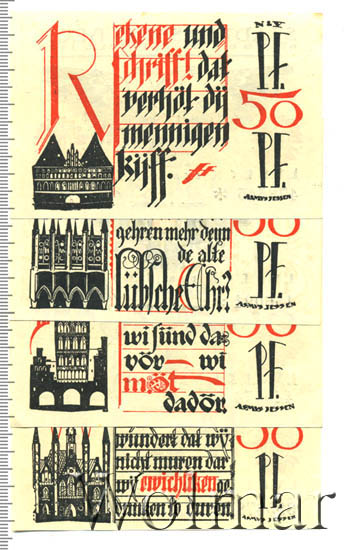 Rekene und
schrifft dat
verhöt dü
mennigen
kyff.
NLV
Pf.
50
Pf.
ASMUS JESSEN
gehren mehr denn
de alte
lübsche Ehr?
50
Pf.
ASMUS JESSEN
wi sünd da
vör wi
möt
dadör.
50
Pf.
ASMUS JESSEN
wundert dat wy
nicht muren dar
wi ewichliken ge
dencken to duren.
50
Pf.
ASMUS JESSEN
Wolmar